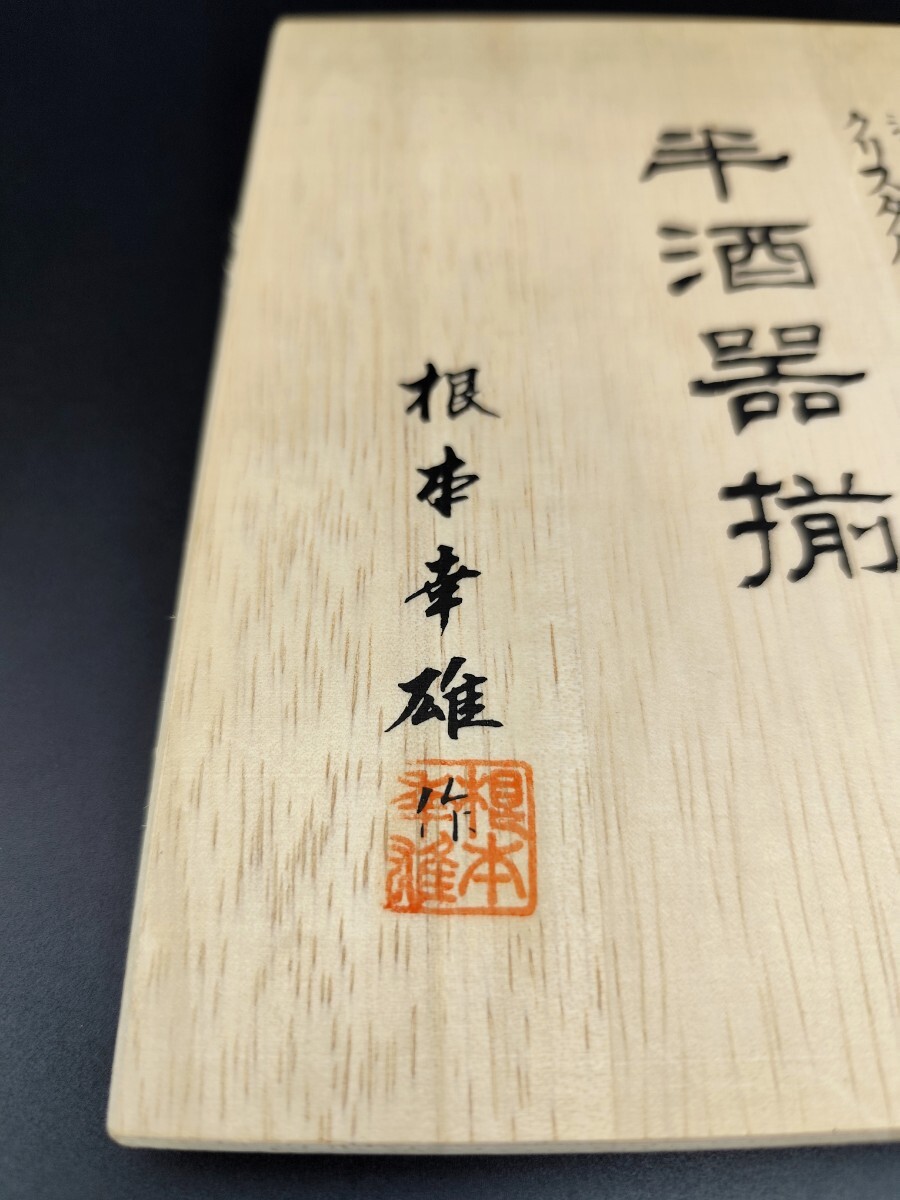 クリスタル
半酒器揃
根本幸雄
作
根本
幸雄